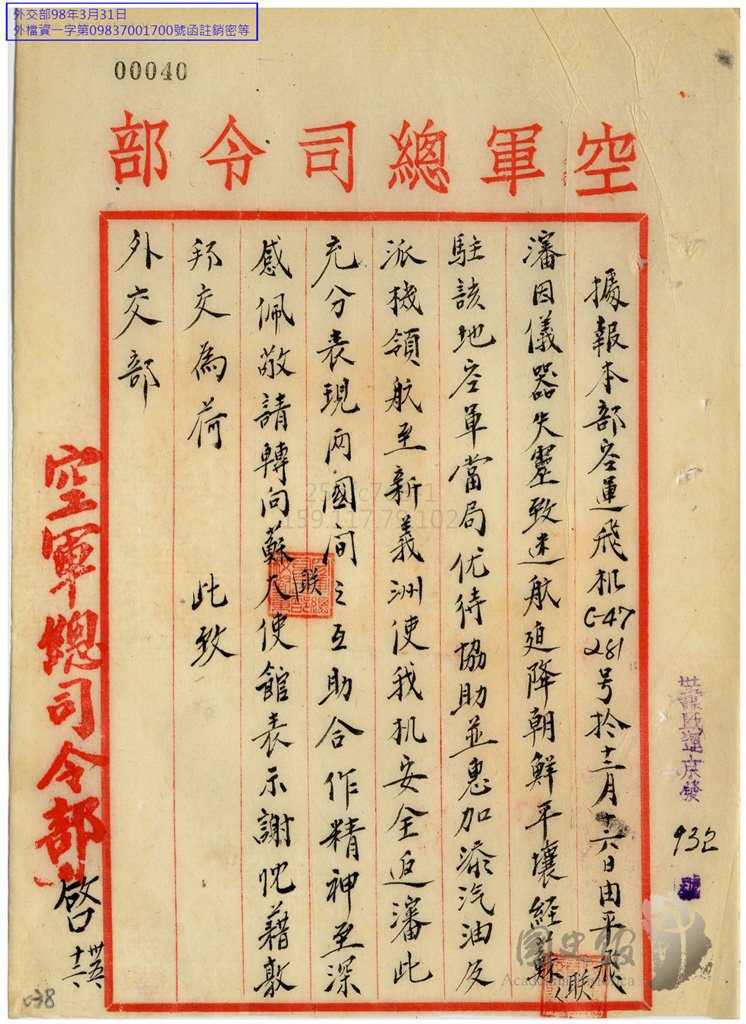 外交部98年3月31日
外檔資一字第09837001700號函註銷密等
00040
空軍總司令部
據報本部空運飛机C-47 281号於十二月十六日由平飛
瀋因儀器失靈致迷航迫降朝鮮平壤經蘇
駐該地空軍當局优待協助並惠加添汽油及
派機領航至新義洲使我机安全返瀋此
充分表現两國间之互助合作精神至深
感佩敬請轉向蘇大使館表示謝忱藉敦
邦交為荷 此致
外交部
空軍總司令部啓
932
038